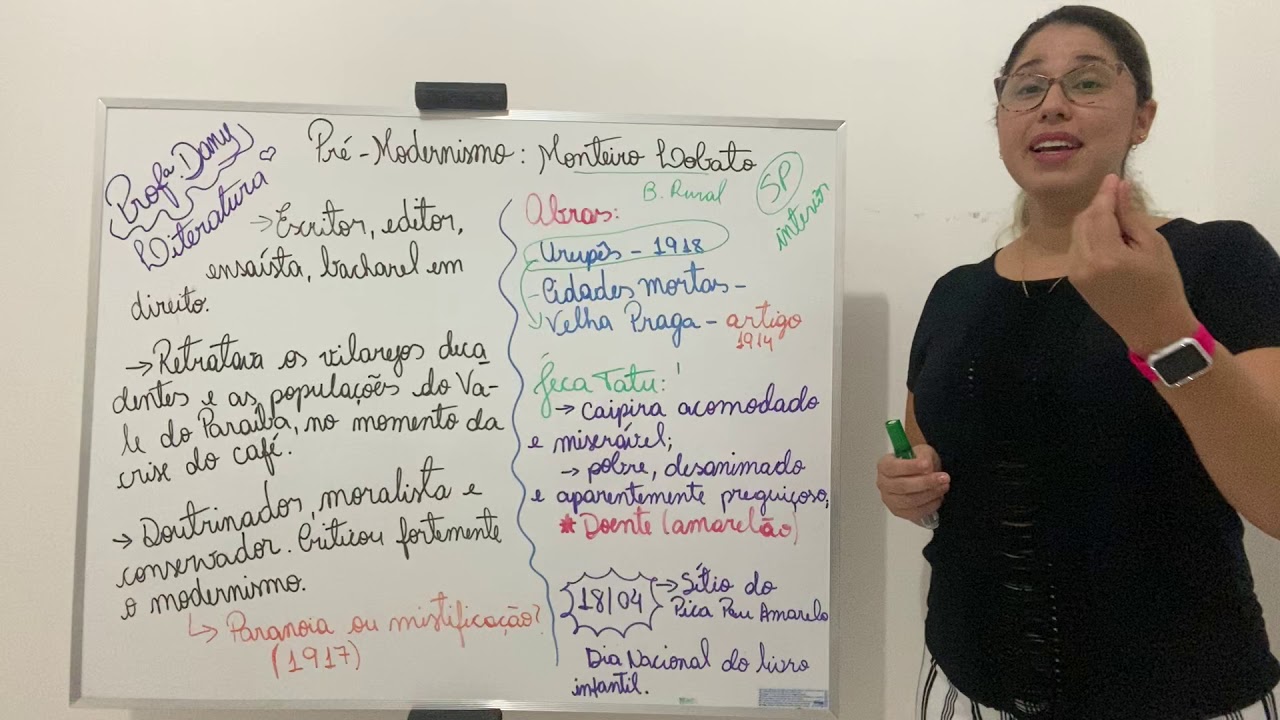 Profª. Damy
Literatura
Pré-Modernismo: Monteiro Lobato
→ Escritor, editor,
ensaísta, bacharel em
direito.
→ Retratava os vilarejos deca
dentes e as populações do Va-
le do Paraíba, no momento da
crise do café.
→ Doutrinador, moralista e
conservador. Criticou fortemente
o modernismo.
↳ Paranoia ou mistificação?
(1917)
B. Rural
SP
interior
Obras:
- Urupês - 1918
- Cidades mortas -
Velha Praga - artigo
1914
Jeca Tatu:
→ Caipira acomodado
e miserável;
→ pobre, desanimado
e aparentemente preguiçoso;
* Doente (amarelão)
18/04 → Sítio do
Pica Pau Amarelo
Dia Nacional do livro
infantil.